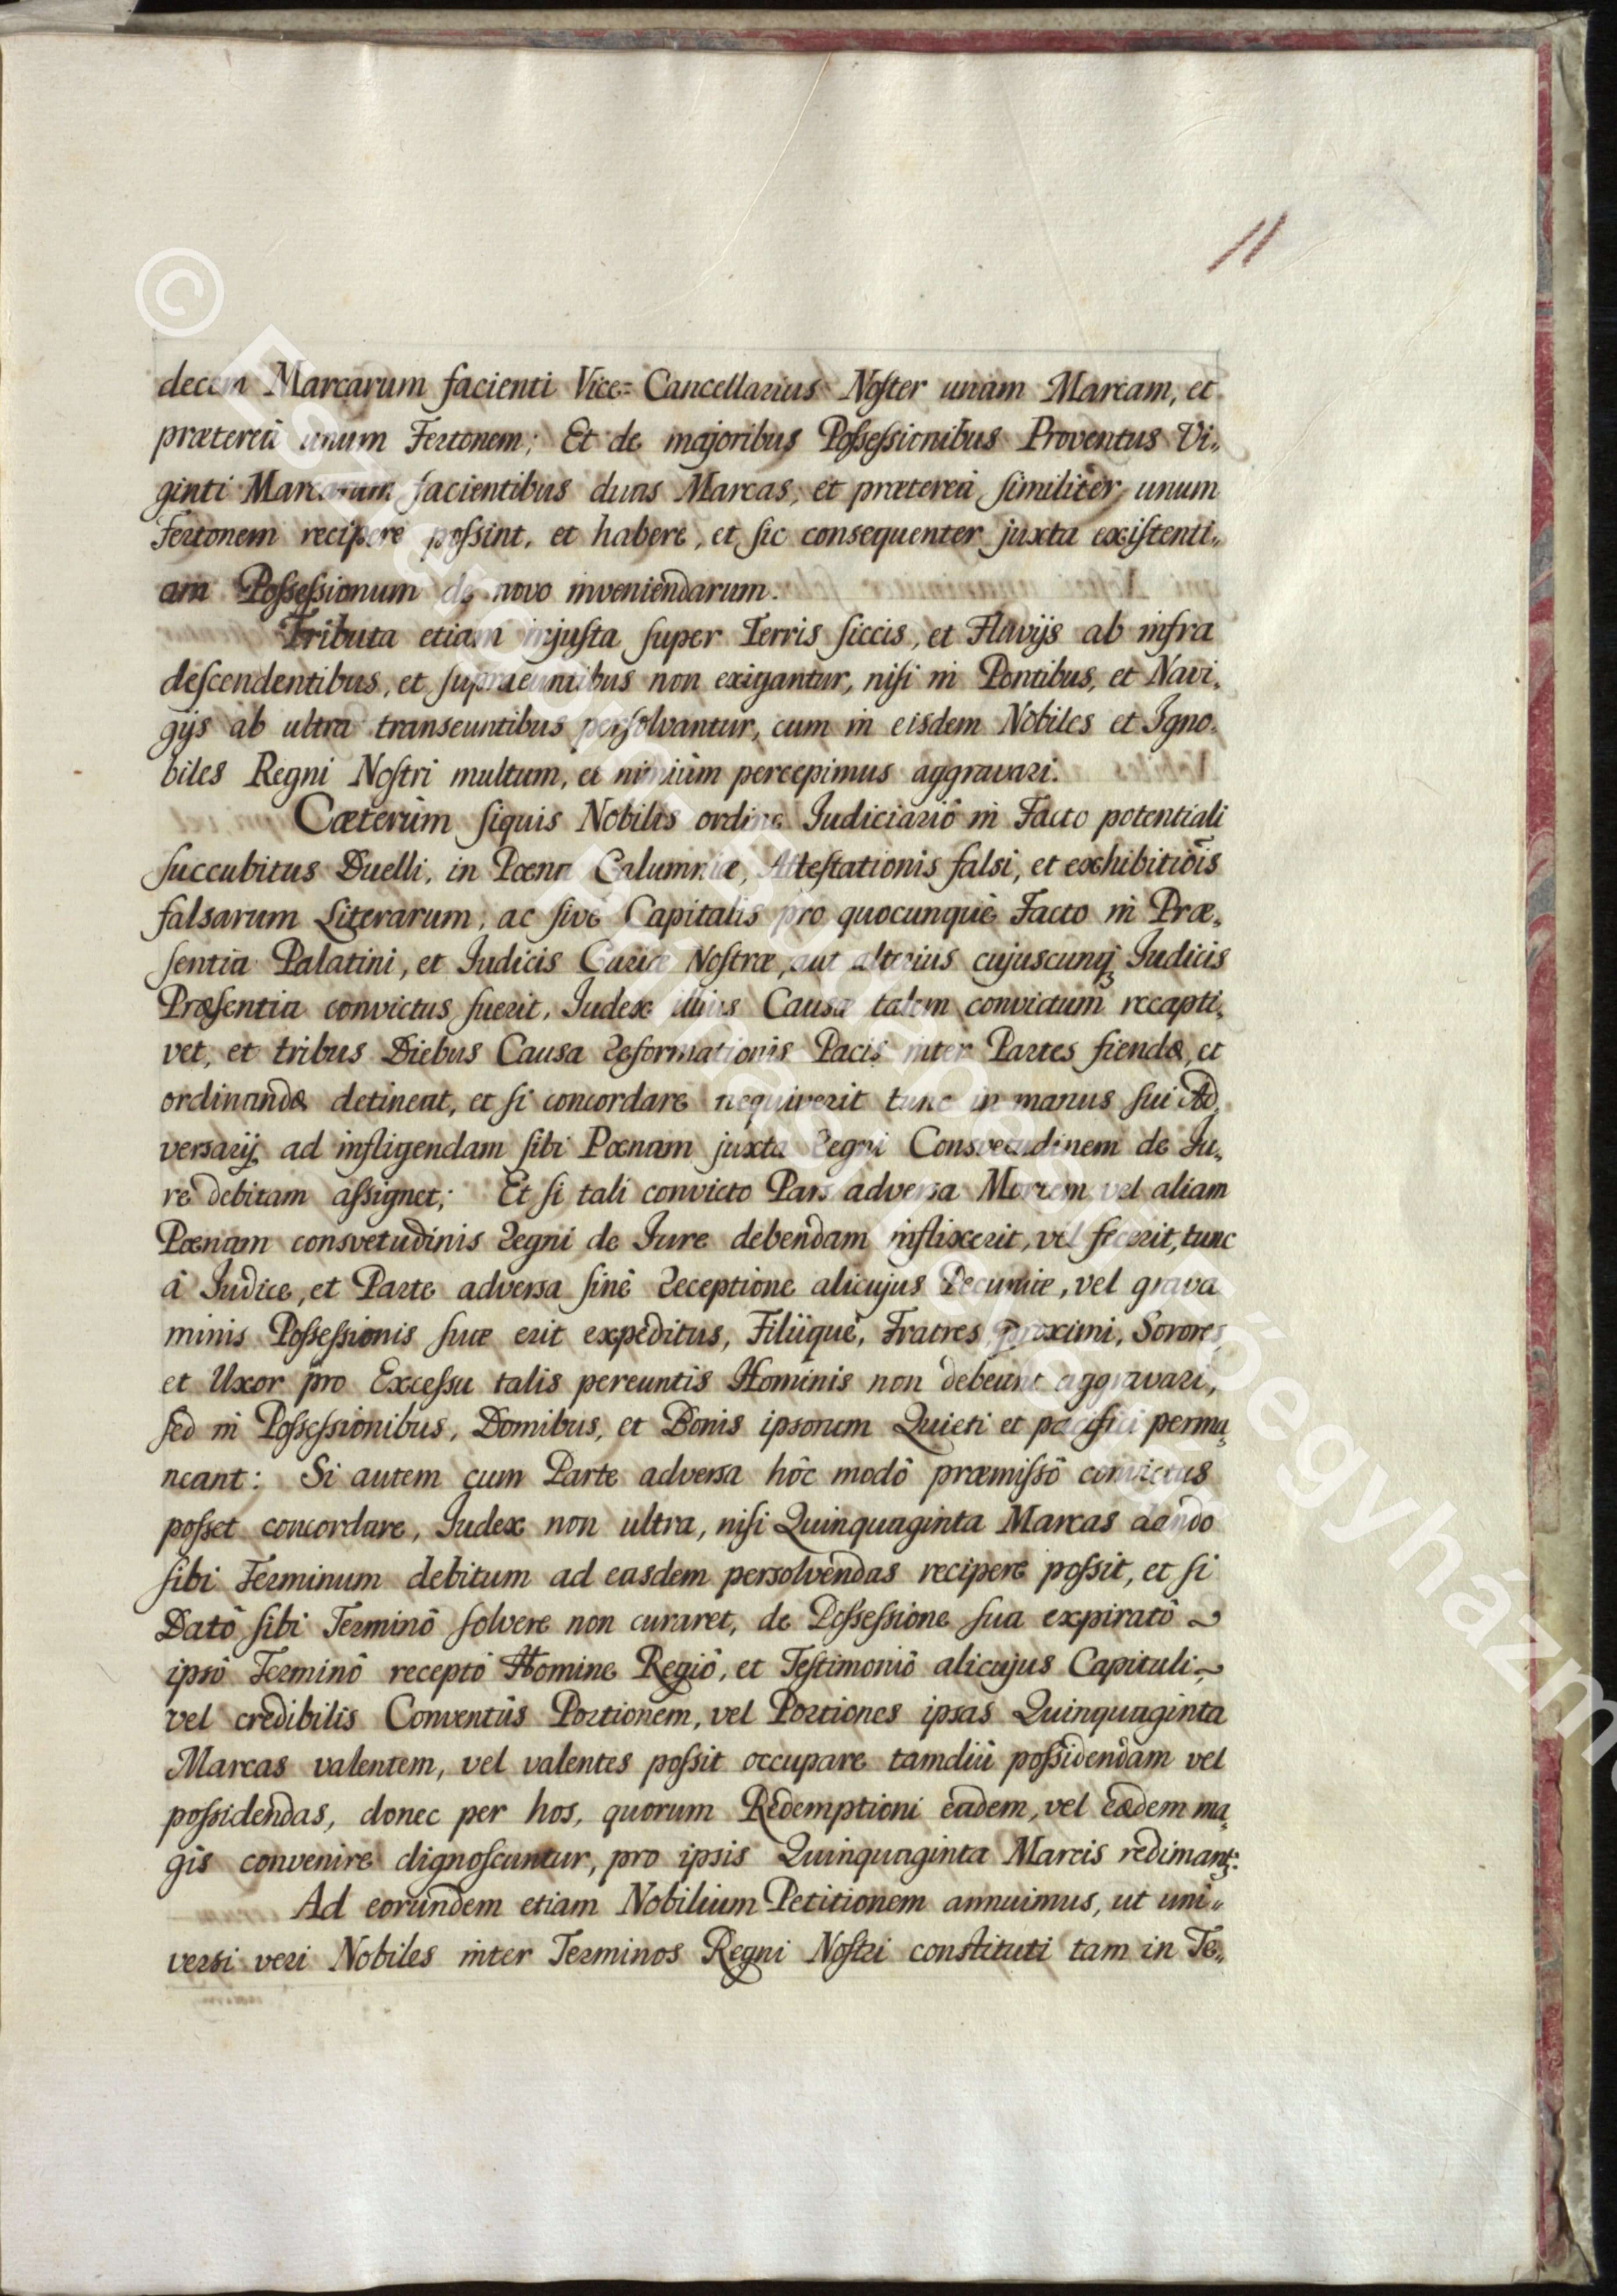 11
decem Marcarum facienti Vice=Cancellarius Noster unam Marcam, et
prætereà unum Fertonem; Et de majoribus Possessionibus Proventus Vi„
ginti Marcarum facientibus duas Marcas, et prætereà similitèr unum
Fertonem recipere possint, et habere, et sic consequenter juxta existenti„
am Possessionum de novo inveniendarum.
Tributa etiam injusta super Terris siccis, et Fluvijs ab infra
descendentibus, et supraeuntibus non exigantur, nisi in Pontibus, et Navi„
gijs ab ultra transeuntibus persolvantur, cum in eisdem Nobiles et Igno„
biles Regni Nostri multum, et nimiùm percepimus aggravari.
Cæterùm siquis Nobilis ordine Judiciariô in Facto potentiali
succubitus Duelli, in Poena Calumniæ, Attestationis falsi, et exhibitiois
falsarum Literarum, ac sivè Capitalis pro quocunquè Facto in Præ„
sentia Palatini, et Judicis Curiæ Nostræ, aut alterius cujuscunq Judicis
Præsentia convictus fuerit, Judex illius Causæ talem convictum recapti„
vet, et tribus Diebus Causa Reformationis Pacis inter Partes fiendæ, et
ordinandæ detineat, et si concordare nequiverit tunc in manus sui Ad„
versarij ad infligendam sibi Poenam juxta Regni Consvetudinem de Ju„
re debitam assignet; Et si tali convicto Pars adversa Mortem vel aliam
Poenam consvetudinis Regni de Jure debendam inflixerit, vel fecerit, tunc
à Judice, et Parte adversa sinè Receptione alicujus Pecuniæ, vel grava
minis Possessionis suæ erit expeditus, Filiiquè, Fratres proximi, Sorores
et Uxor pro Excessu talis pereuntis Hominis non debeant aggravari,
sed in Possessionibus, Domibus, et Bonis ipsorum Quieti et pacifici perma„
neant: Si autem cum Parte adversa hôc modô præmissô convictus
posset concordare, Judex non ultra, nisi Quinquaginta Marcas dando
sibi Terminum debitum ad easdem persolvendas recipere possit, et si
Datô sibi Terminô solvere non curaret, de Possessione sua expiratô
ipsô Terminô receptô Homine Regiô, et Testimoniô alicujus Capituli,
vel credibilis Conventûs Portionem, vel Portiones ipsas Quinquaginta
Marcas valentem, vel valentes possit occupare tamdiù possidendam vel
possidendas, donec per hos, quorum Redemptioni eadem, vel eædem ma„
gis convenire dignoscuntur, pro ipsis Quinquaginta Marcis redimant:
Ad eorundem etiam Nobilium Petitionem annuimus, ut uni„
versi veri Nobiles inter Terminos Regni Nostri constituti tam in Te„